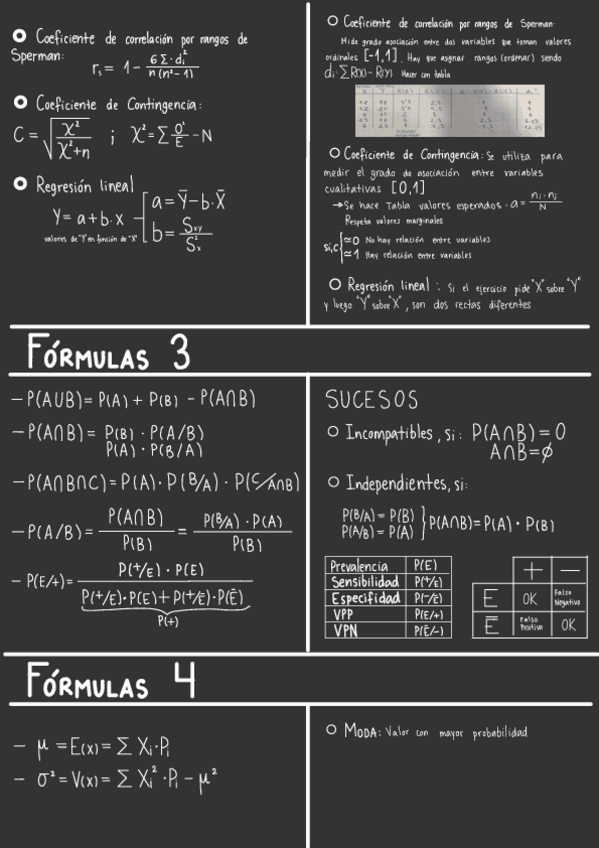 Coeficiente de correlación por rangos de
Sperman:
r_s = 1 - 6Σ·d_i² / n(n²-1)
Coeficiente de Contingencia:
C = √(χ² / χ²+n) ; χ² = Σ O²/E - N
Regresión lineal
Y = a + b.x
a = Ȳ - b·X̄
b = S_xy / S²_x
valores de "Y" en función de "X"
Coeficiente de correlación por rangos de Sperman:
Mide grado asociación entre dos variables que toman valores
ordinales [-1,1]. Hay que asignar rangos (ordenar) siendo
d_i: Σ R(x) - R(y) Hacer con tabla
Coeficiente de Contingencia: Se utiliza para
medir el grado de asociación entre variables
cualitativas [0,1]
→ Se hace Tabla valores esperados. a = n_i · n_j / N
Respeta valores marginales
Si,C
≃0 No hay relación entre variables
≃1 Hay relación entre variables
Regresión lineal: Si el ejercicio pide "X" sobre "Y"
y luego "Y" sobre "X", son dos rectas diferentes
FÓRMULAS 3
- P(AUB) = P(A) + P(B) - P(A∩B)
- P(A∩B) = P(B) · P(A/B)
P(A) · P(B/A)
- P(A∩B∩C) = P(A) · P(B/A) · P(C/A∩B)
- P(A/B) = P(A∩B) / P(B) = P(B/A) · P(A) / P(B)
- P(E/+) = P(+/E) · P(E) / P(+/E)·P(E) + P(+/Ē)·P(Ē)
P(+)
SUCESOS
Incompatibles, si: P(A∩B) = 0
A∩B = ∅
Independientes, si:
P(B/A) = P(B)
P(A/B) = P(A)
P(A∩B) = P(A) · P(B)
Prevalencia P(E)
Sensibilidad P(+/E)
Especifidad P(-/Ē)
VPP P(E/+)
VPN P(Ē/-)
+ -
E OK Falso Negativo
Ē Falso Positivo OK
FÓRMULAS 4
- μ = E(x) = Σ X_i·P_i
- σ² = V(x) = Σ X_i² · P_i - μ²
MODA: Valor con mayor probabilidad